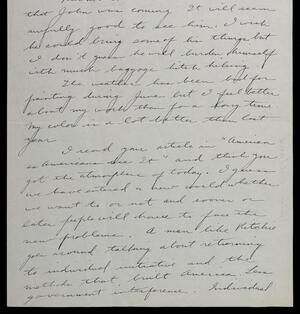 that John was coming. It will seem
awfully good to see him. I wish
he could bring some of his things but
I don't guess he will burden himself
with much baggage hitch hiking.
The weather has been bad for
painting during June but I feel better
about my work than for a long time
My color is a lot better than last
year.
I read your article in "America
as Americans see It" and think you
got the atmosphere of today. I guess
we have entered a new world whether
we want to or not and sooner or
later people will have to face the
new problems. A man like Ritchie
goes around talking about returning
to individual initiative and the
methods that built America. Less
government interference. Individual